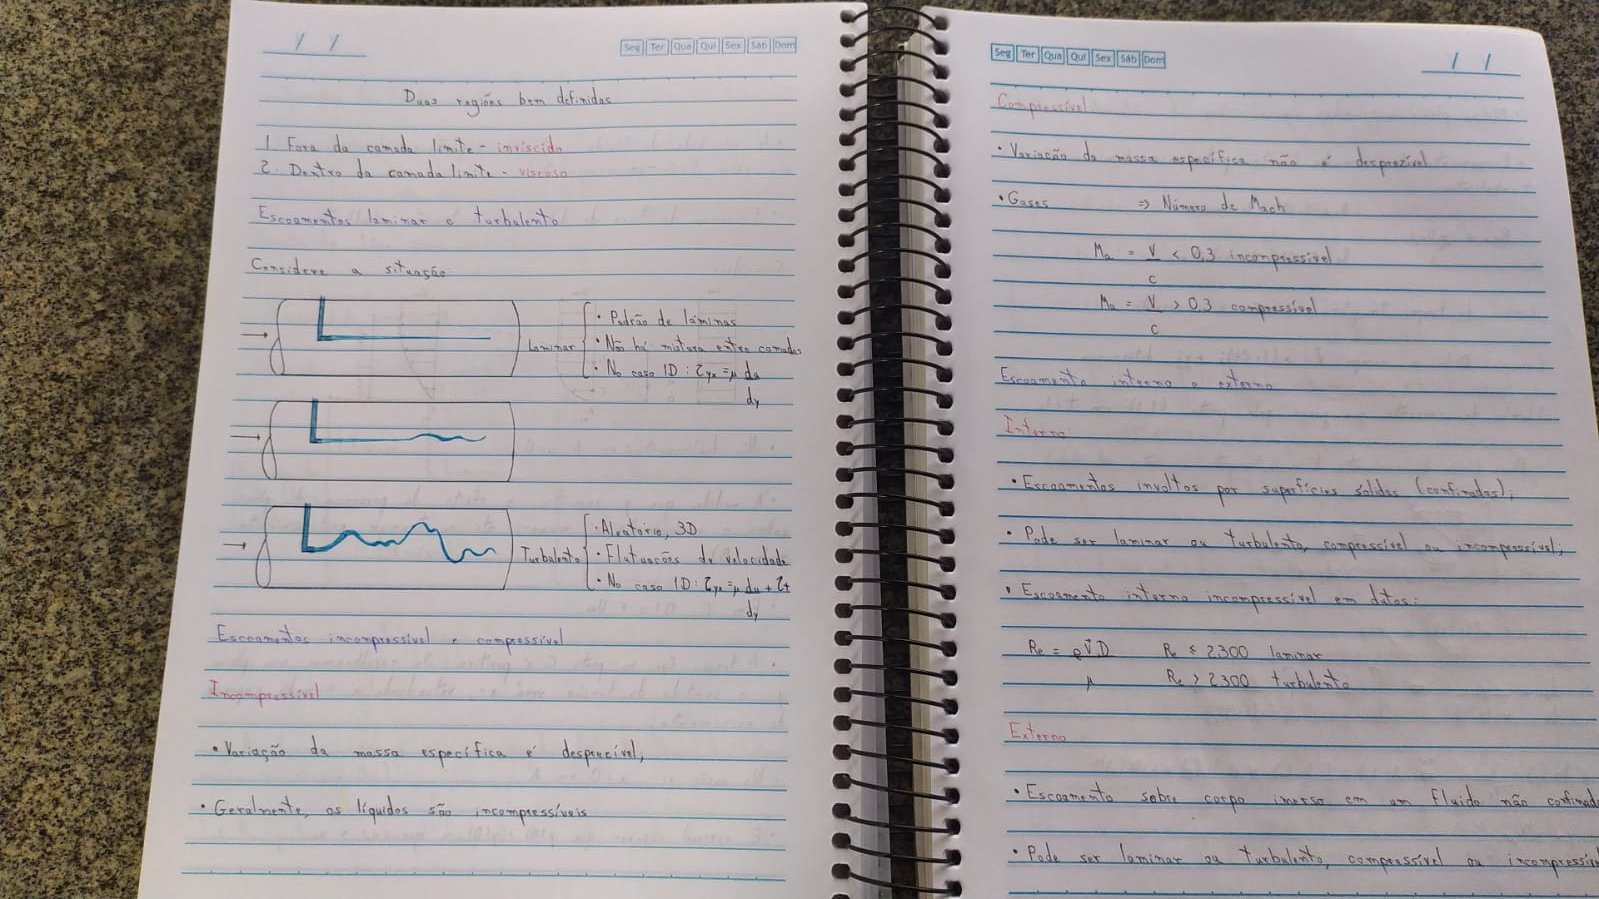 / /
Seg Ter Qua Qui Sex Sáb Dom
Duas regiões bem definidas
1. Fora da camada limite - invíscido
2. Dentro da camada limite - viscoso
Escoamentos laminar e turbulento
Considere a situação:
Laminar
• Padrão de lâminas
• Não há mistura entre camadas
• No caso 1D: τyx = μ du
dy
Turbulento
• Aleatório, 3D
• Flutuações de velocidade
• No caso 1D: τyx = μ du + τt
dy
Escoamentos incompressível e compressível
Incompressível
• Variação da massa específica é desprezível;
• Geralmente, os líquidos são incompressíveis
Seg Ter Qua Qui Sex Sáb Dom
/ /
Compressível
• Variação da massa específica não é desprezível
• Gases ⇒ Número de Mach
Ma = V < 0,3 incompressível
c
Ma = V > 0,3 compressível
c
Escoamento interno e externo
Interno
• Escoamentos involtos por superfícies sólidas (confinados);
• Pode ser laminar ou turbulento, compressível ou incompressível;
• Escoamento interno incompressível em dutos:
Re = ρV̄.D Re ≤ 2300 laminar
μ Re > 2300 turbulento
Externo
• Escoamento sobre corpo imerso em um fluido não confinado
• Pode ser laminar ou turbulento, compressível ou incompressív